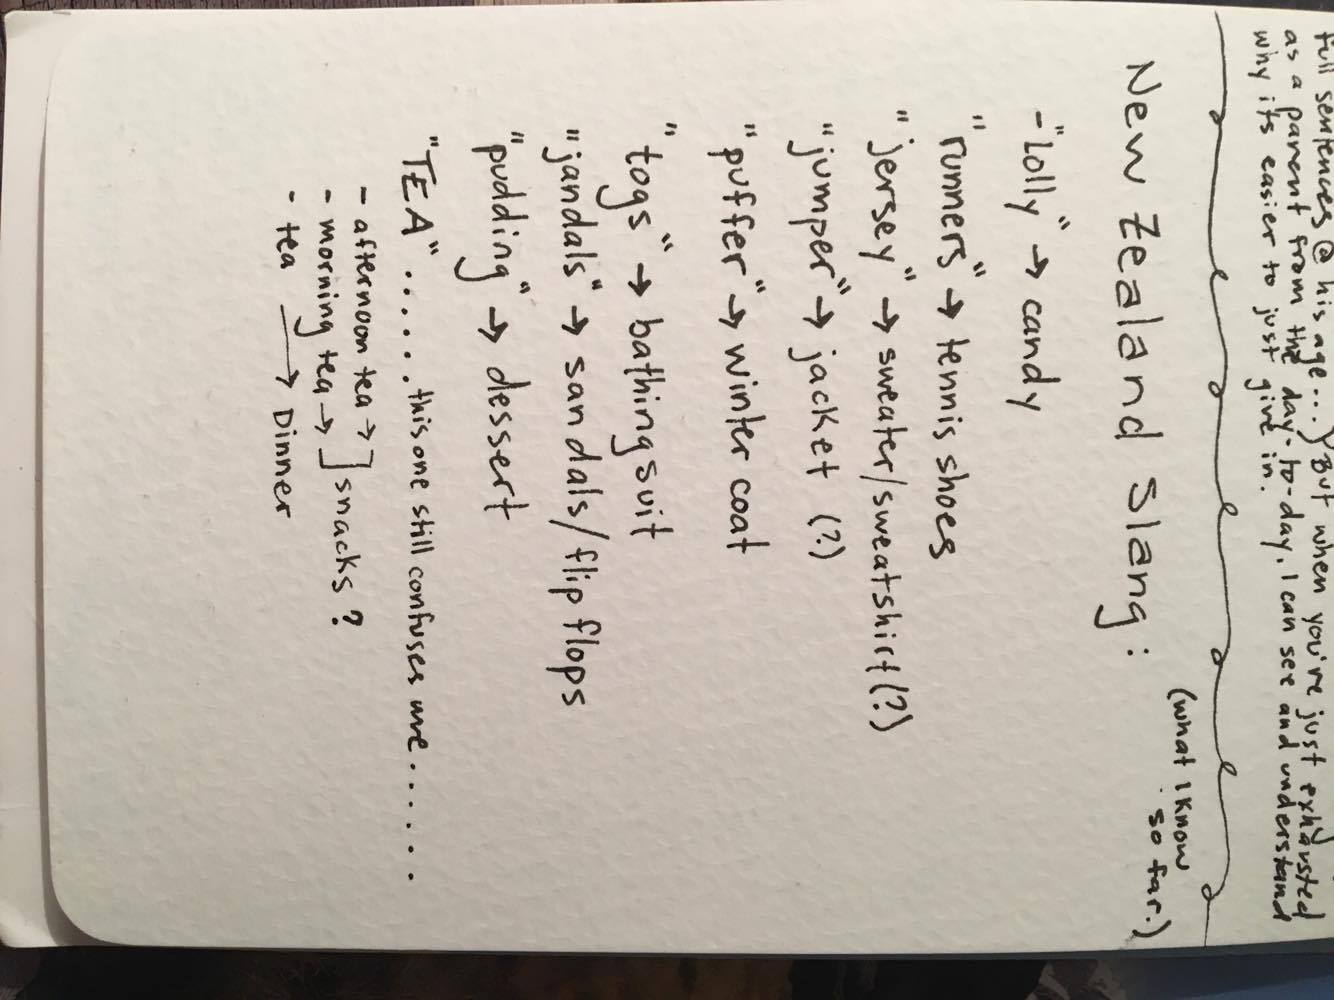 full sentences @ his age...) But when you're just exhausted
as a parent from the day-to-day, I can see and understand
why its easier to just give in.
New Zealand Slang: (what I know
so far.)
- "Lolly" → candy
"runners" → tennis shoes
"jersey" → sweater/sweatshirt (?)
"jumper" → jacket (?)
"puffer" → winter coat
"togs" → bathing suit
"jandals" → sandals/flip flops
"pudding" → dessert
"TEA" ..... this one still confuses me......
- afternoon tea →
- morning tea → ] snacks?
- tea → Dinner